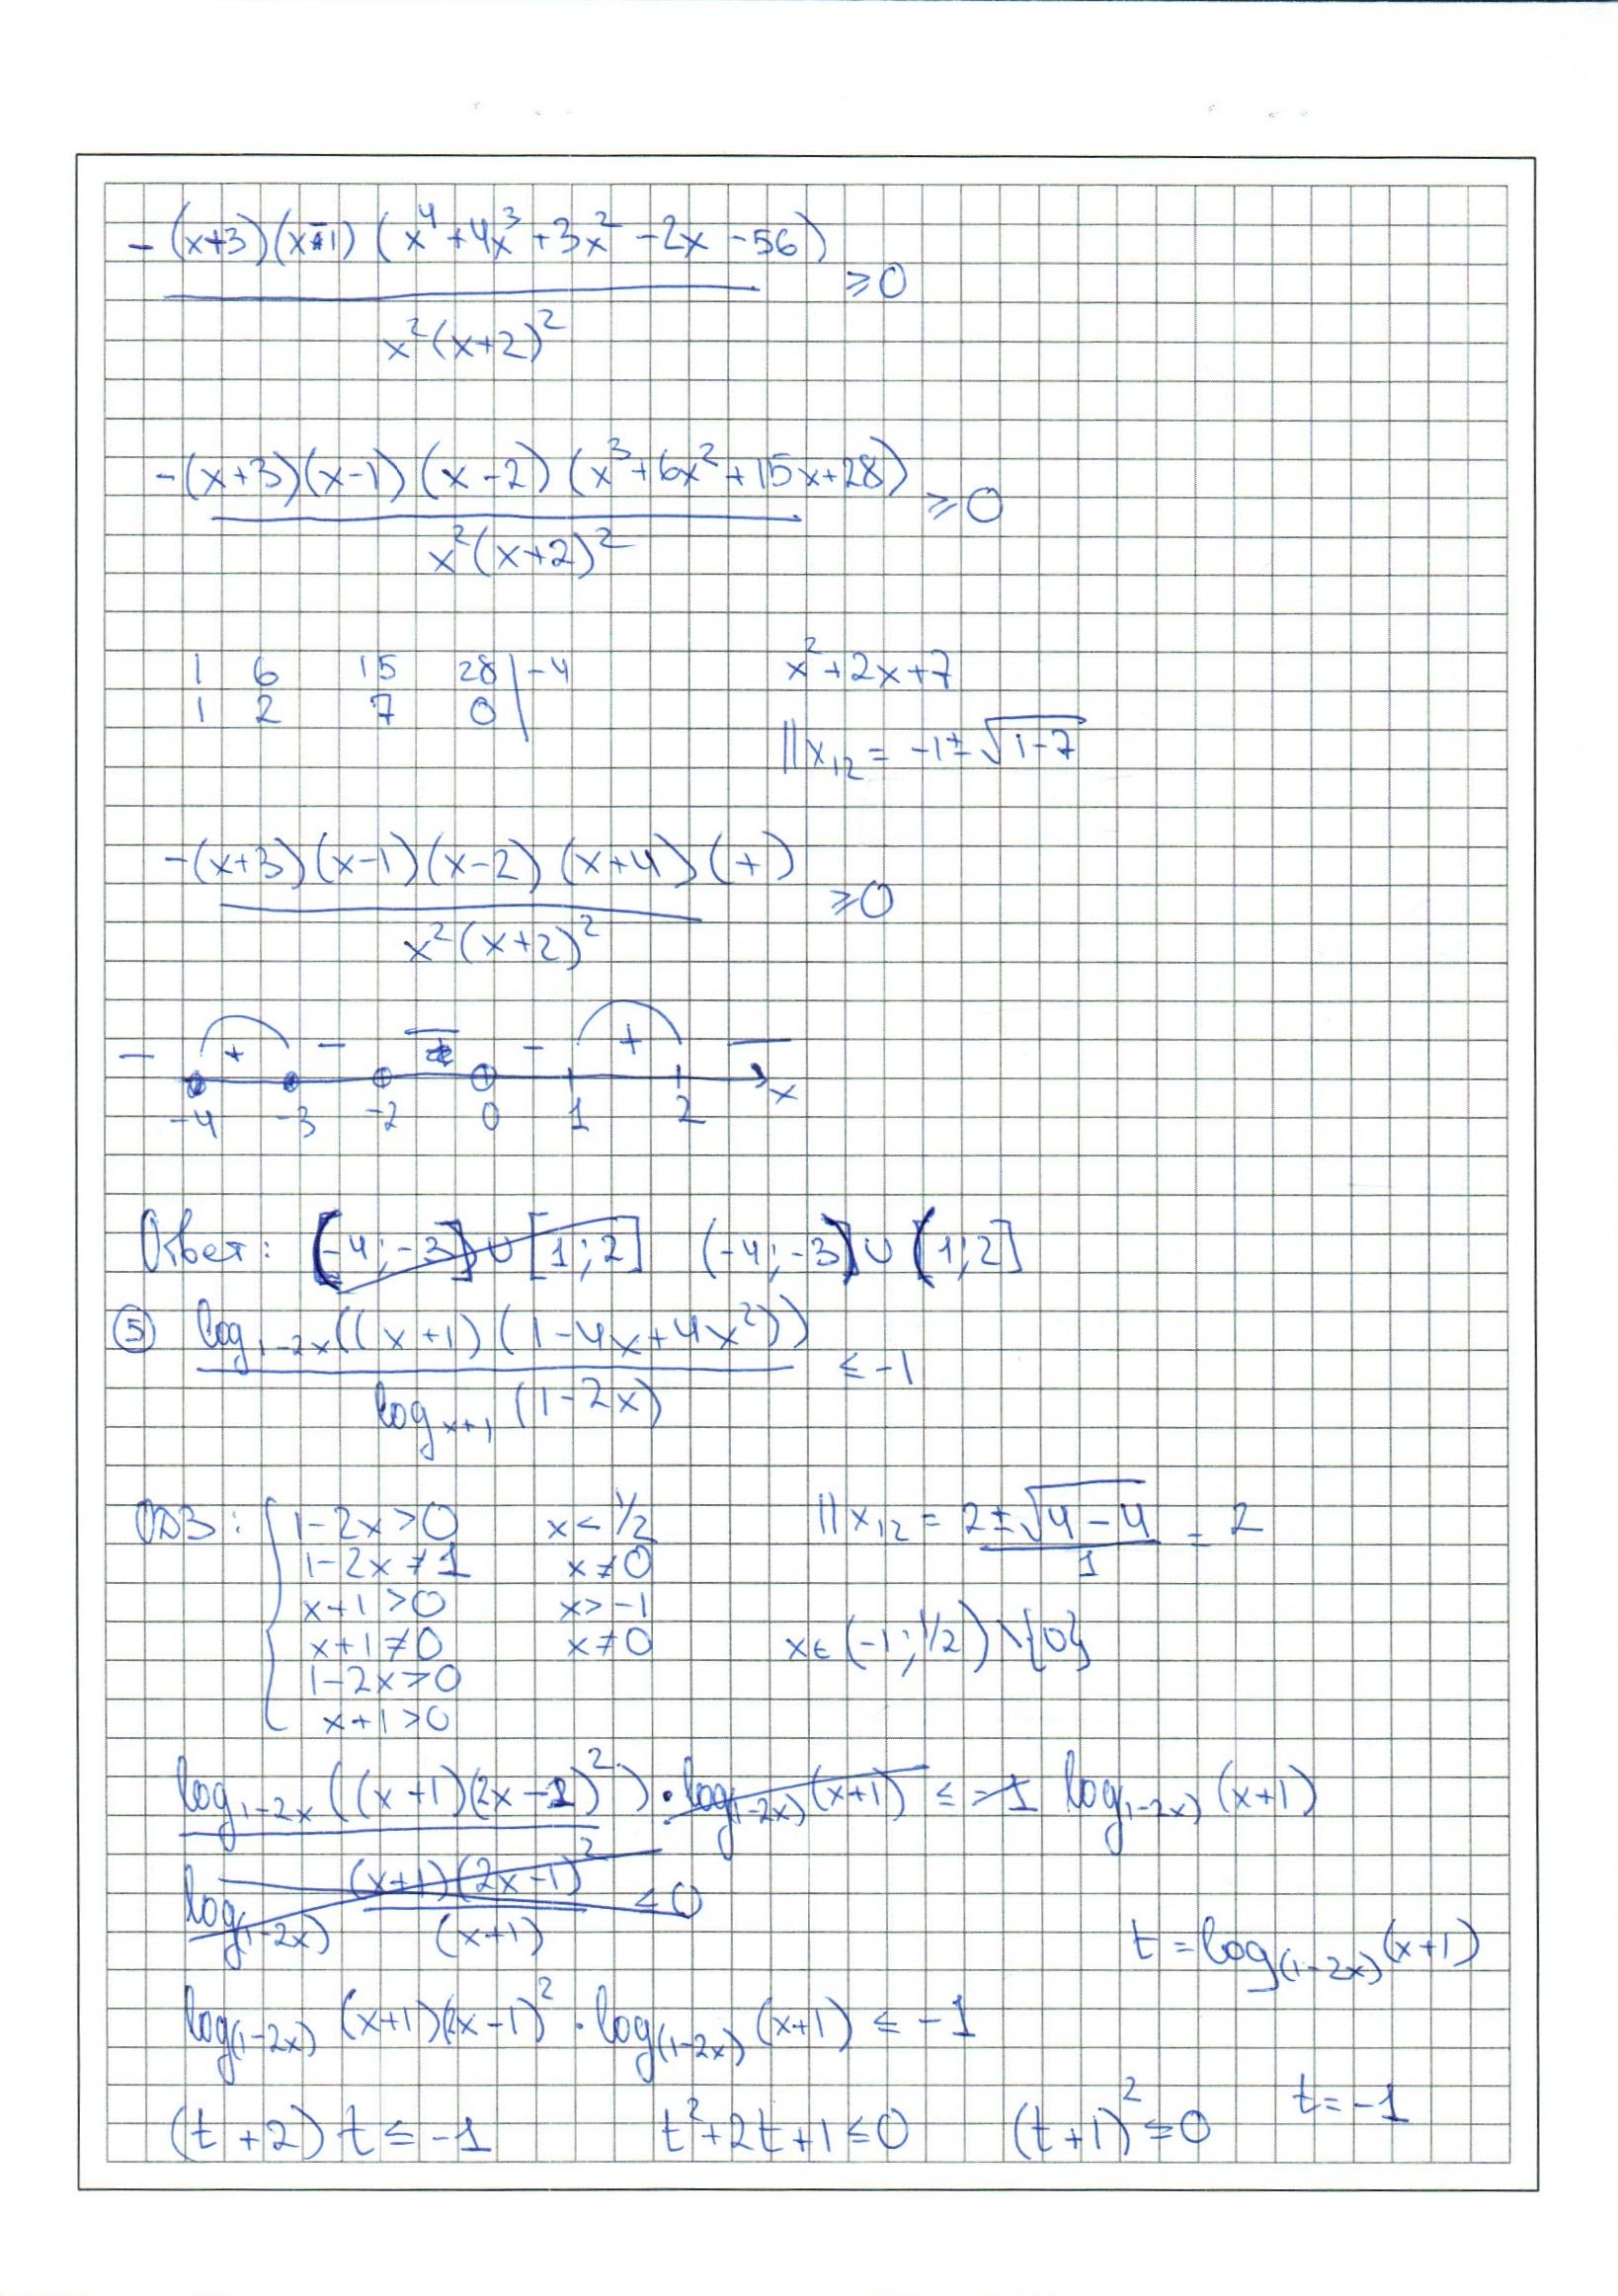 -(x+3)(x-1)(x⁴+4x³+3x²-2x-56)
≥0
x²(x+2)²
-(x+3)(x-1)(x-2)(x³+6x²+15x+28)
≥0
x²(x+2)²
1 6 15 28 | -4
1 2 7 0
x²+2x+7
||x₁₂ = -1±√(1-7)
-(x+3)(x-1)(x-2)(x+4)(+)
≥0
x²(x+2)²
- + - - - + -
-4 -3 -2 0 1 2 x
Ответ: [-4;-3]∪[1;2] (-4;-3)∪(1;2]
⑤ log₁₋₂ₓ((x+1)(1-4x+4x²))
≤ -1
logₓ₊₁(1-2x)
ОДЗ: { 1-2x>0 x<1/2 ||x₁₂ = (2±√(4-4))/1 = 2
1-2x≠1 x≠0
x+1>0 x>-1
x+1≠0 x≠0 x∈(-1;1/2)\{0}
1-2x>0
x+1>0
log₁₋₂ₓ((x+1)(2x-1)²)·log₍₁₋₂ₓ₎(x+1) ≤ -1 log₍₁₋₂ₓ₎(x+1)
log₍₁₋₂ₓ₎ (x+1)(2x-1)²/(x+1) ≤0
t = log₍₁₋₂ₓ₎(x+1)
log₍₁₋₂ₓ₎(x+1)(2x-1)²·log₍₁₋₂ₓ₎(x+1) ≤ -1
(t+2)t ≤ -1 t²+2t+1≤0 (t+1)²≤0 t=-1